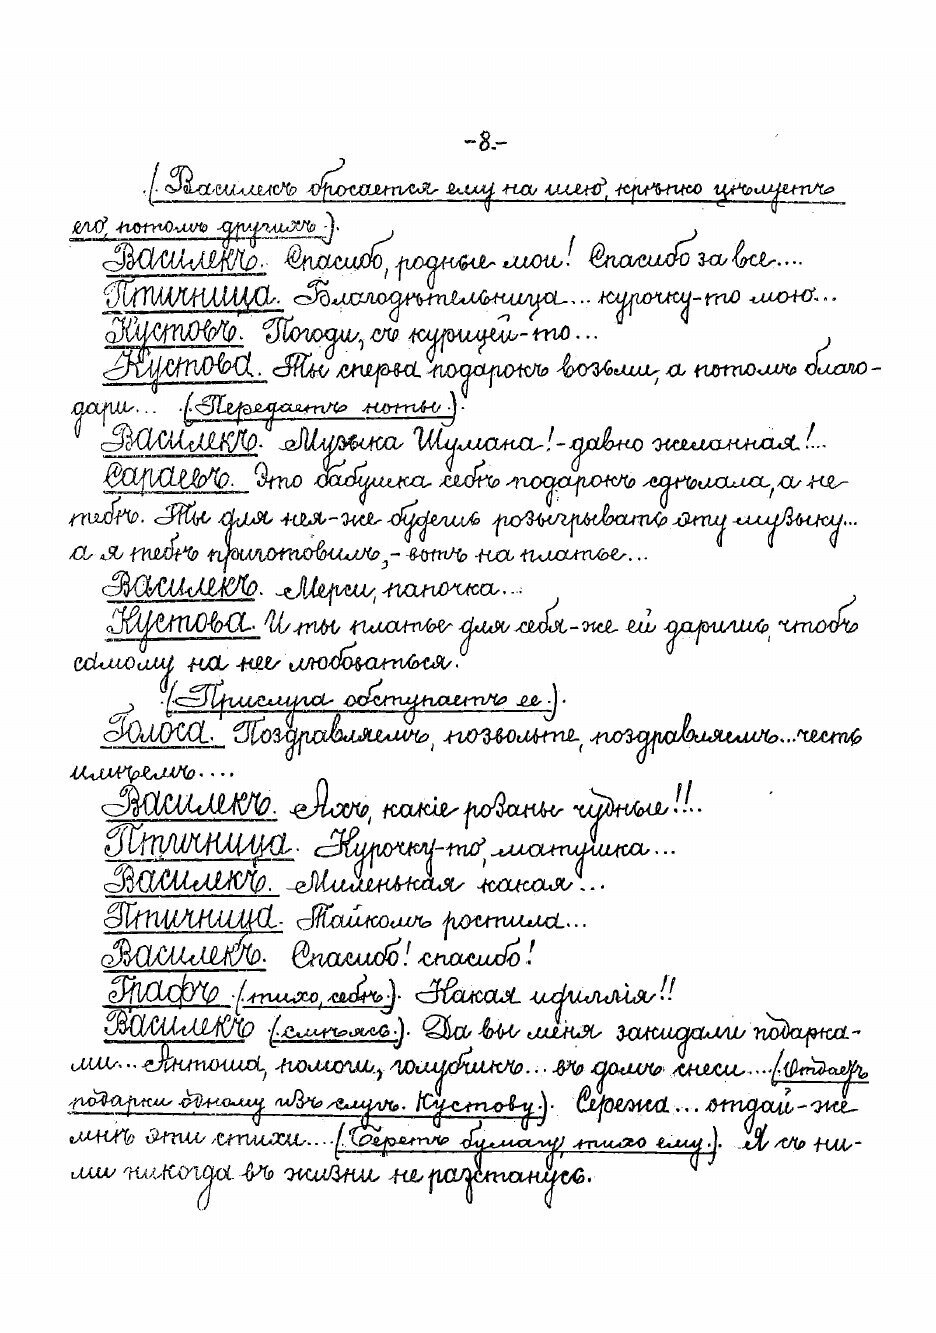 -8.-
(Василекъ бросается ему на шею, крѣпко цѣлуетъ
его, потомъ другихъ.).
Василекъ. Спасибо, родные мои! Спасибо за все....
Птичница. Благодѣтельница... курочку-то мою...
Кустовъ. Погоди, съ курицей-то...
Кустова. Ты сперва подарокъ возьми, а потомъ благо-
дари... (Передаетъ ноты.).
Василекъ. Музыка Шумана!-давно желанная!..
Сараевъ. Это бабушка себѣ подарокъ сдѣлала, а не
тебѣ. Ты для нея-же будешь розыгрывать эту музыку...
а я тебѣ приготовилъ,- вотъ на платье...
Василекъ. Мерси, папочка...
Кустова. И ты платье для себя-же ей даришь, чтобъ
самому на нее любоваться.
(Прислуга обступаетъ ее.).
Голоса. Поздравляемъ, позвольте, поздравляемъ...честь
имѣемъ....
Василекъ. Ахъ, какіе розаны чудные!!..
Птичница. Курочку-то, матушка...
Василекъ. Миленькая какая...
Птичница. Тайкомъ ростила...
Василекъ. Спасибо! спасибо!
Графъ (тихо, себѣ.). Какая идиллія!!
Василекъ (смѣясь.). Да вы меня закидали подарка-
ми... Антоша, помоги, голубчикъ... въ домъ снеси....(Отдаетъ
подарки одному изъ слугъ. Кустову.). Сережа... отдай-же
мнѣ эти стихи....(Беретъ бумагу, тихо ему.). Я съ ни-
ми никогда въ жизни не разстанусь.